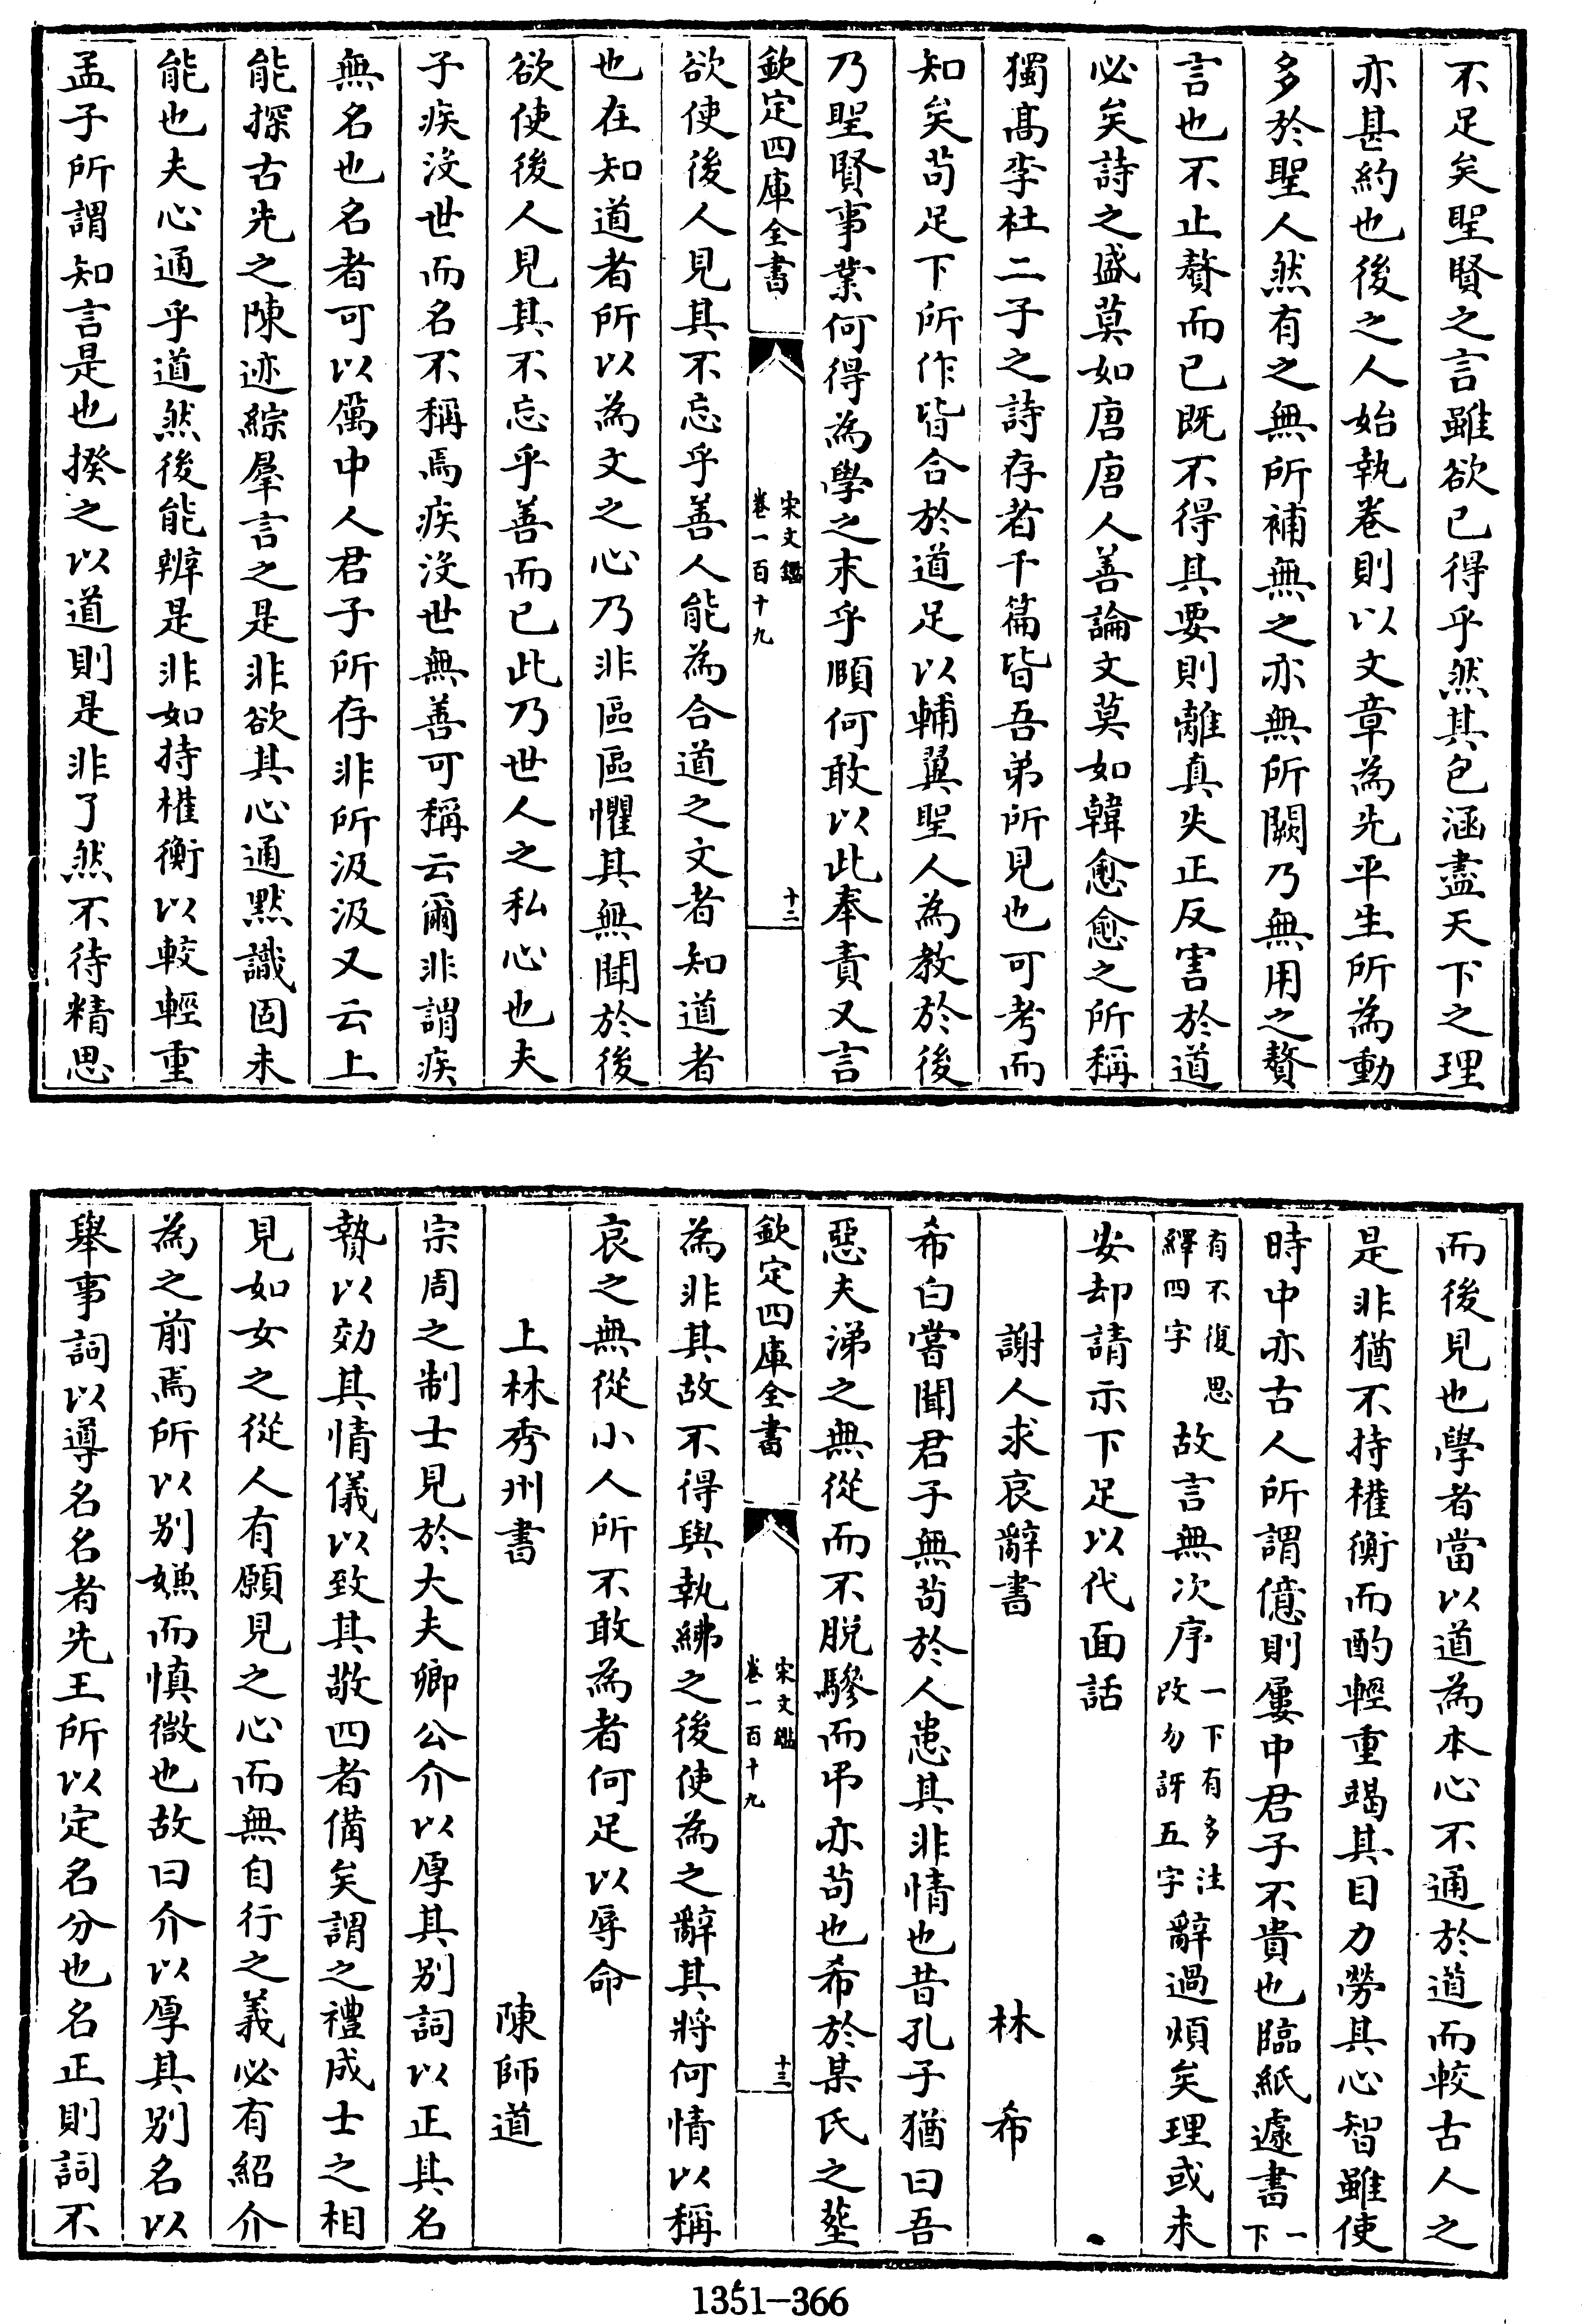 不足矣聖賢之言雖欲已得乎然其包涵盡天下之理
亦甚約也後之人始執卷則以文章為先平生所為動
多於聖人然有之無所補無之亦無所闕乃無用之贅
言也不止贅而已既不得其要則離真失正反害於道
必矣詩之盛莫如唐唐人善論文莫如韓愈愈之所稱
獨髙李杜二子之詩存者千篇皆吾弟所見也可考而
知矣茍足下所作皆合於道足以輔翼聖人為教於後
乃聖賢事業何得為學之末乎頤何敢以此奉責又言
欽定四庫全書
宋文鑑
卷一百十九
十二
欲使後人見其不忘乎善人能為合道之文者知道者
也在知道者所以為文之心乃非區區懼其無聞於後
欲使後人見其不忘乎善而已此乃世人之私心也夫
子疾沒世而名不稱焉疾沒世無善可稱云爾非謂疾
無名也名者可以厲中人君子所存非所汲汲又云上
能探古先之陳迹綜羣言之是非欲其心通黙識固未
能也夫心通乎道然後能辨是非如持權衡以較輕重
孟子所謂知言是也揆之以道則是非了然不待精思
而後見也學者當以道為本心不通於道而較古人之
是非猶不持權衡而酌輕重竭其目力勞其心智雖使
時中亦古人所謂億則屢中君子不貴也臨紙遽書一下
有不復思
繹四字
故言無次序
一下有多注
改勿訝五字
辭過煩矣理或未
安却請示下足以代面話
謝人求哀辭書
林希
希白嘗聞君子無茍於人患其非情也昔孔子猶曰吾
惡夫涕之無從而不脱驂而弔亦茍也希於某氏之葬
欽定四庫全書
宋文鑑
卷一百十九
十三
為非其故不得與執紼之後使為之辭其將何情以稱
哀之無從小人所不敢為者何足以辱命
上林秀州書
陳師道
宗周之制士見於大夫卿公介以厚其别詞以正其名
贄以効其情儀以致其敬四者備矣謂之禮成士之相
見如女之從人有願見之心而無自行之義必有紹介
為之前焉所以别嫌而慎微也故曰介以厚其别名以
舉事詞以導名名者先王所以定名分也名正則詞不
1351-366